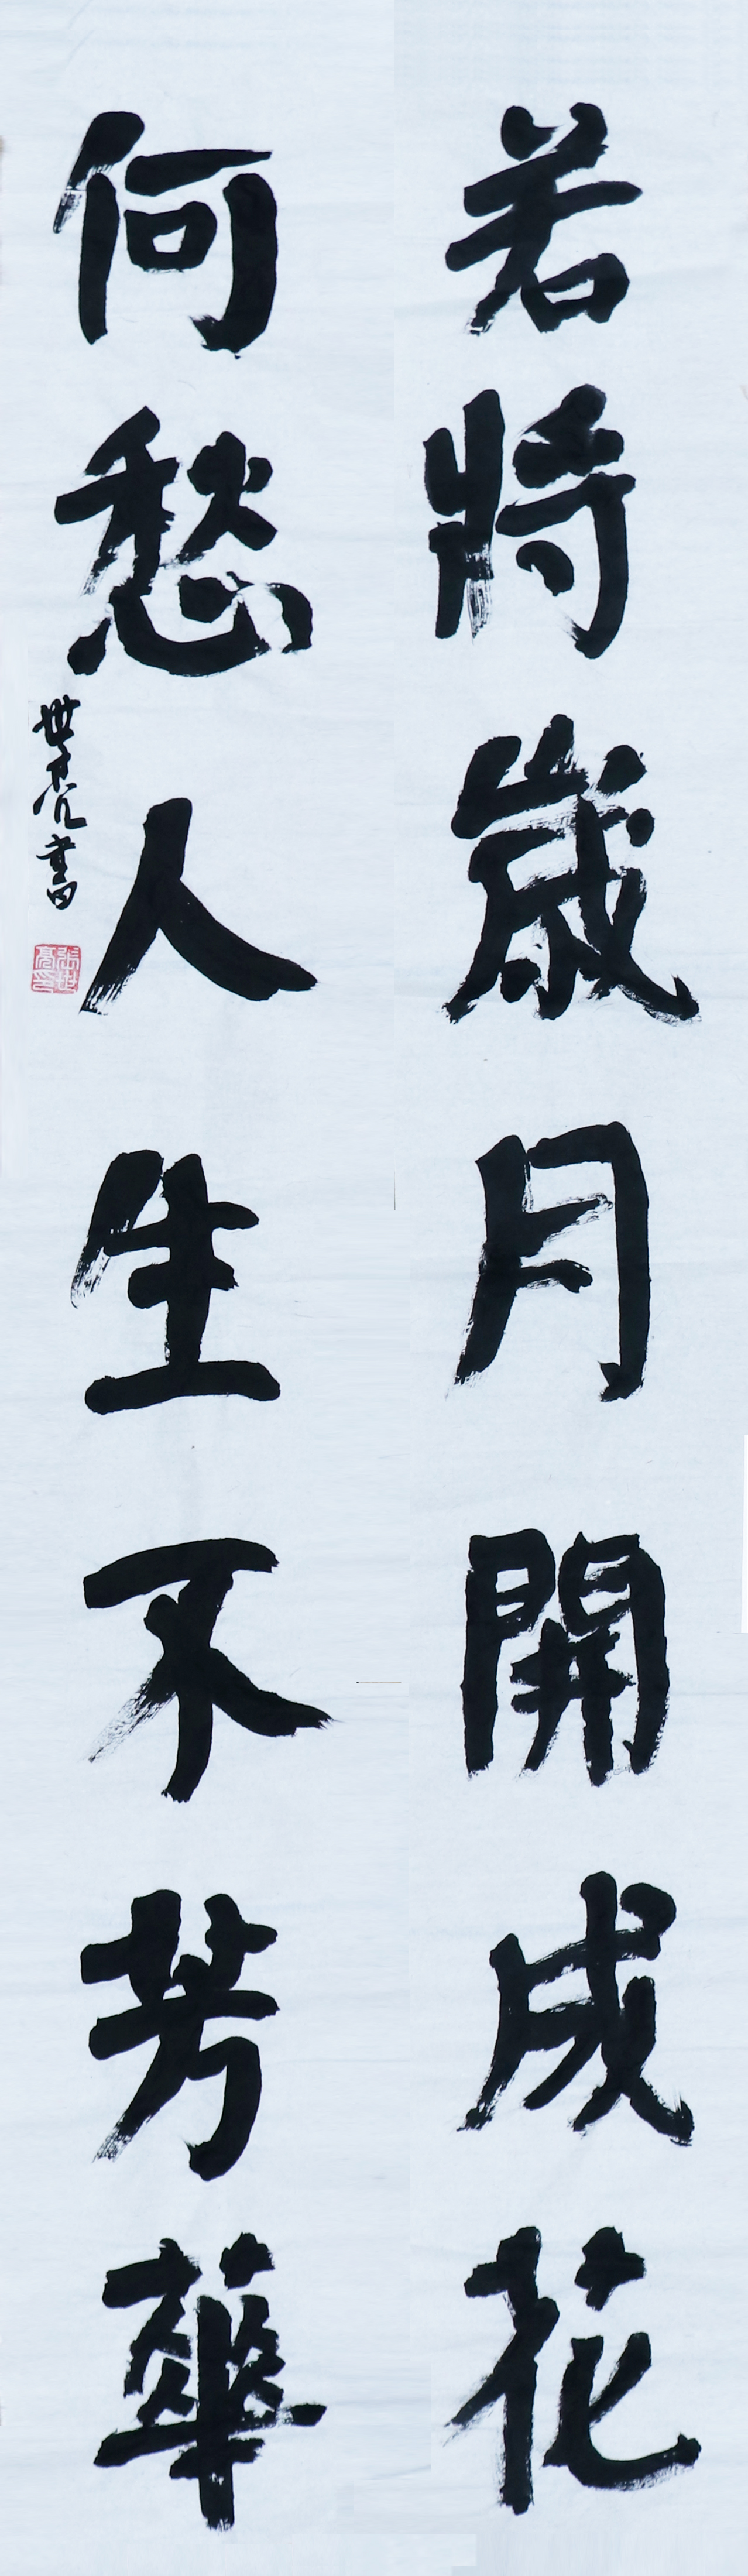 若將歲月開成花
何愁人生不芳華
世亮書
張世亮印